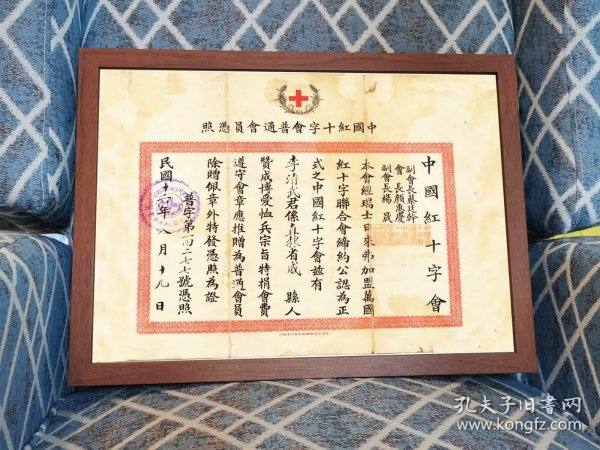 中國紅十字會普通會員憑照
中國紅十字會
副會長蔡廷幹
會長顏惠慶
副會長楊晟
本會經瑞士日來弗加盟萬國
紅十字聯合會締約公認為正
式之中國紅十字會茲有
李清武君係直隸省威縣人
贊成博愛恤兵宗旨特捐會費
遵守會章應推贈為普通會員
除贈佩章外特發憑照為證
普字第一四二七七號憑照
民國十六年月十九日
孔夫子旧书网
www.kongfz.com